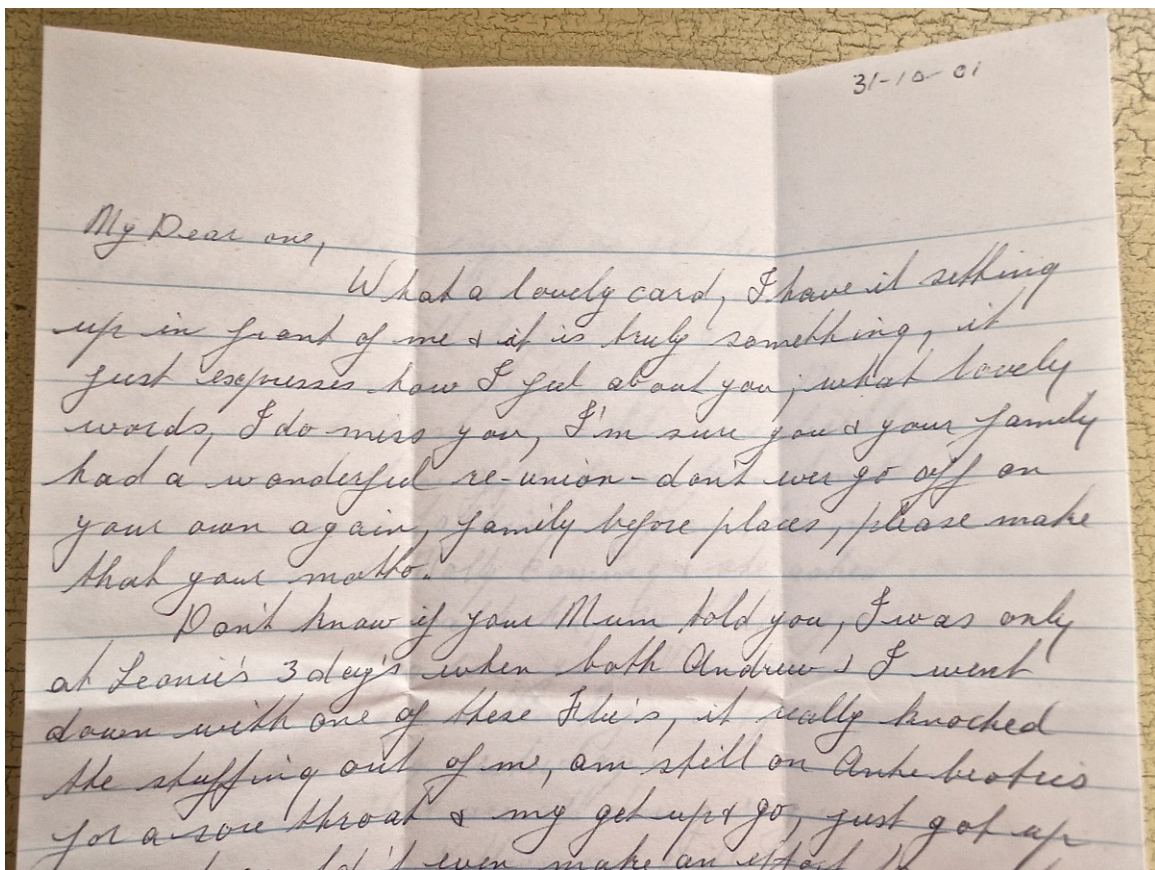 31-10-01
My Dear one,
What a lovely card, I have it setting
up in front of me & it is truly something, it
just expresses how I feel about you; what lovely
words, I do miss you, I'm sure you & your family
had a wonderful re-union - don't ever go off on
your own again, family before places, please make
that your motto.
Don't know if your Mum told you, I was only
at Leonie's 3 day's when both Andrew & I went
down with one of these Flu's, it really knocked
the stuffing out of me, am still on Antebiotics
for a sore throat & my get up & go, just got up
even make an effort